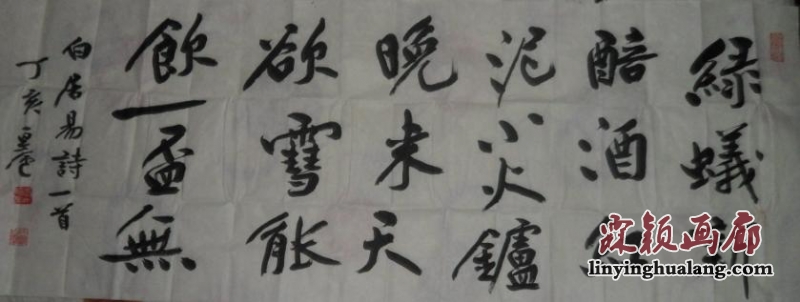 綠蟻新
醅酒
泥小火鑪
晚来天
欲雪能
飲一盃無
白居易詩一首
丁亥
霖颖画廊
linyinghualang.com